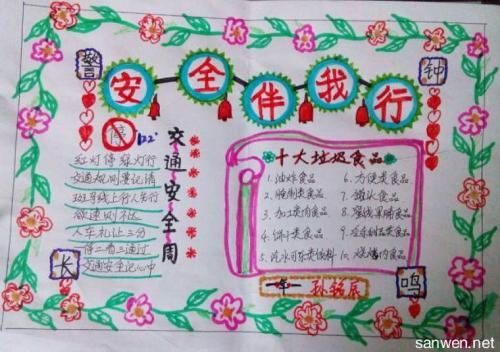 安全伴我行
警
钟
长
鸣
停
交通安全周
红灯停 绿灯行
交通规则要记清
斑马线上行人先行
欲速则不达
人车礼让三分
一停二看三通过
交通安全记心中
十大垃圾食品
1. 油炸食品
2. 腌制类食品
3. 加工类肉食品
4. 饼干类食品
5. 汽水可乐类饮料
6. 方便类食品
7. 罐头食品
8. 蜜饯果脯食品
9. 冷冻甜品类食品
10. 烧烤内食品
孙铭辰
sanwen.net